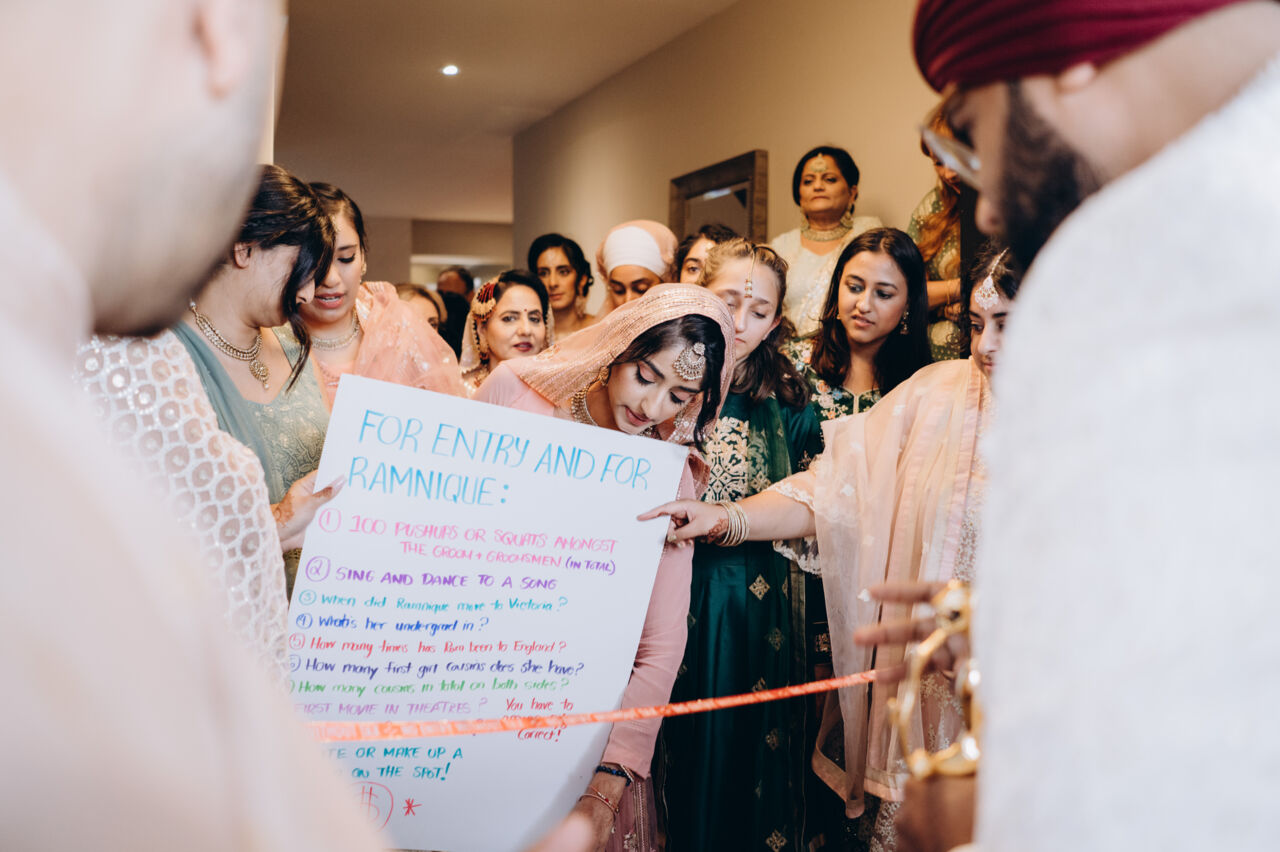 FOR ENTRY AND FOR
RAMNIQUE:
① 100 PUSHUPS OR SQUATS AMONGST
THE GROOM + GROOMSMEN (IN TOTAL)
② SING AND DANCE TO A SONG
③ When did Ramnique move to Victoria?
④ What's her undergrad in?
⑤ How many times has Ram been to England?
How many first girl cousins does she have?
How many cousins in total on both sides?
FIRST MOVIE IN THEATRES? You have to
Correct!
OR MAKE UP A
ON THE SPOT!
$ *